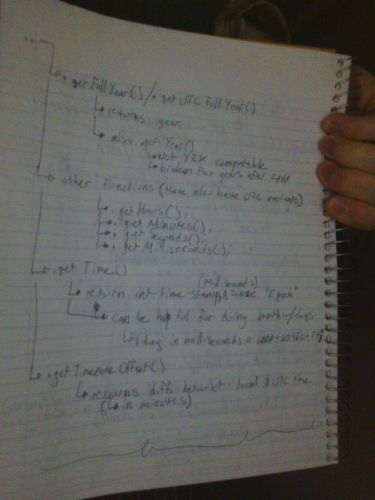 .getFullYear()/.getUTCFullYear()
returns year
also .getYear()
Not Y2K compatable
broken for years after
other functions (these also have UTC variants)
.getHours();
.getMinutes();
.getSeconds();
.getMilliseconds();
.getTime()
(milliseconds)
return int-time-stamp since "Epoch"
can be helpful for doing math w/ days
1 day in milliseconds =
.getTimezoneOffset()
returns diff. between local & UTC time
(in minutes)